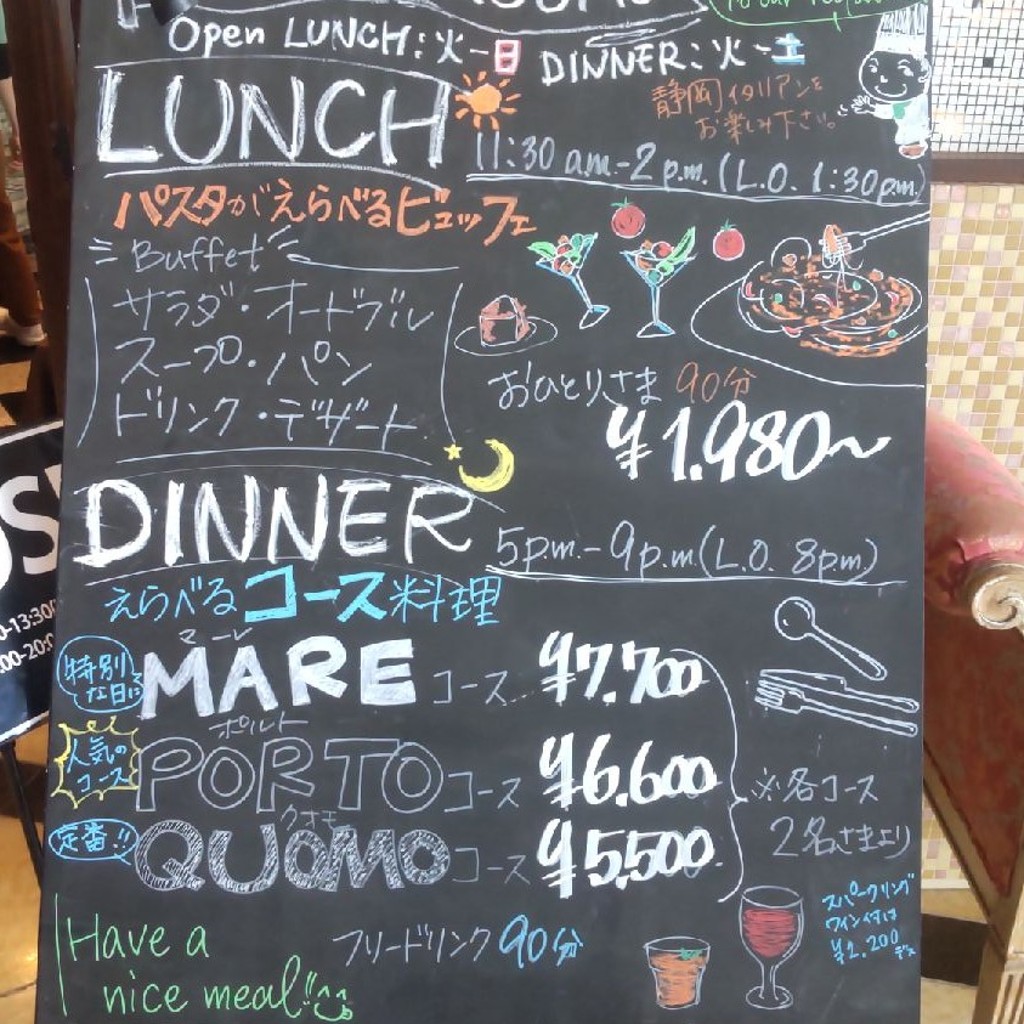 Open LUNCH:火-日 DINNER:火-土
LUNCH
静岡イタリアンを
お楽しみ下さい。
11:30 a.m.-2 p.m.(L.O. 1:30p.m.)
パスタがえらべるビュッフェ
Buffet
サラダ・オードブル
スープ・パン
ドリンク・デザート
おひとりさま 90分
¥1.980~
DINNER
5p.m.-9p.m.(L.O. 8p.m)
えらべるコース料理
特別な日に
マーレ
MARE コース ¥7.700
人気の
コース
ポルト
PORTO コース ¥6.600
定番!!
クオモ
QUOMO コース ¥5.500
※各コース
2名さまより
Have a
nice meal!!
フリードリンク 90分
スパークリング
ワイン付は
¥2.200
デス